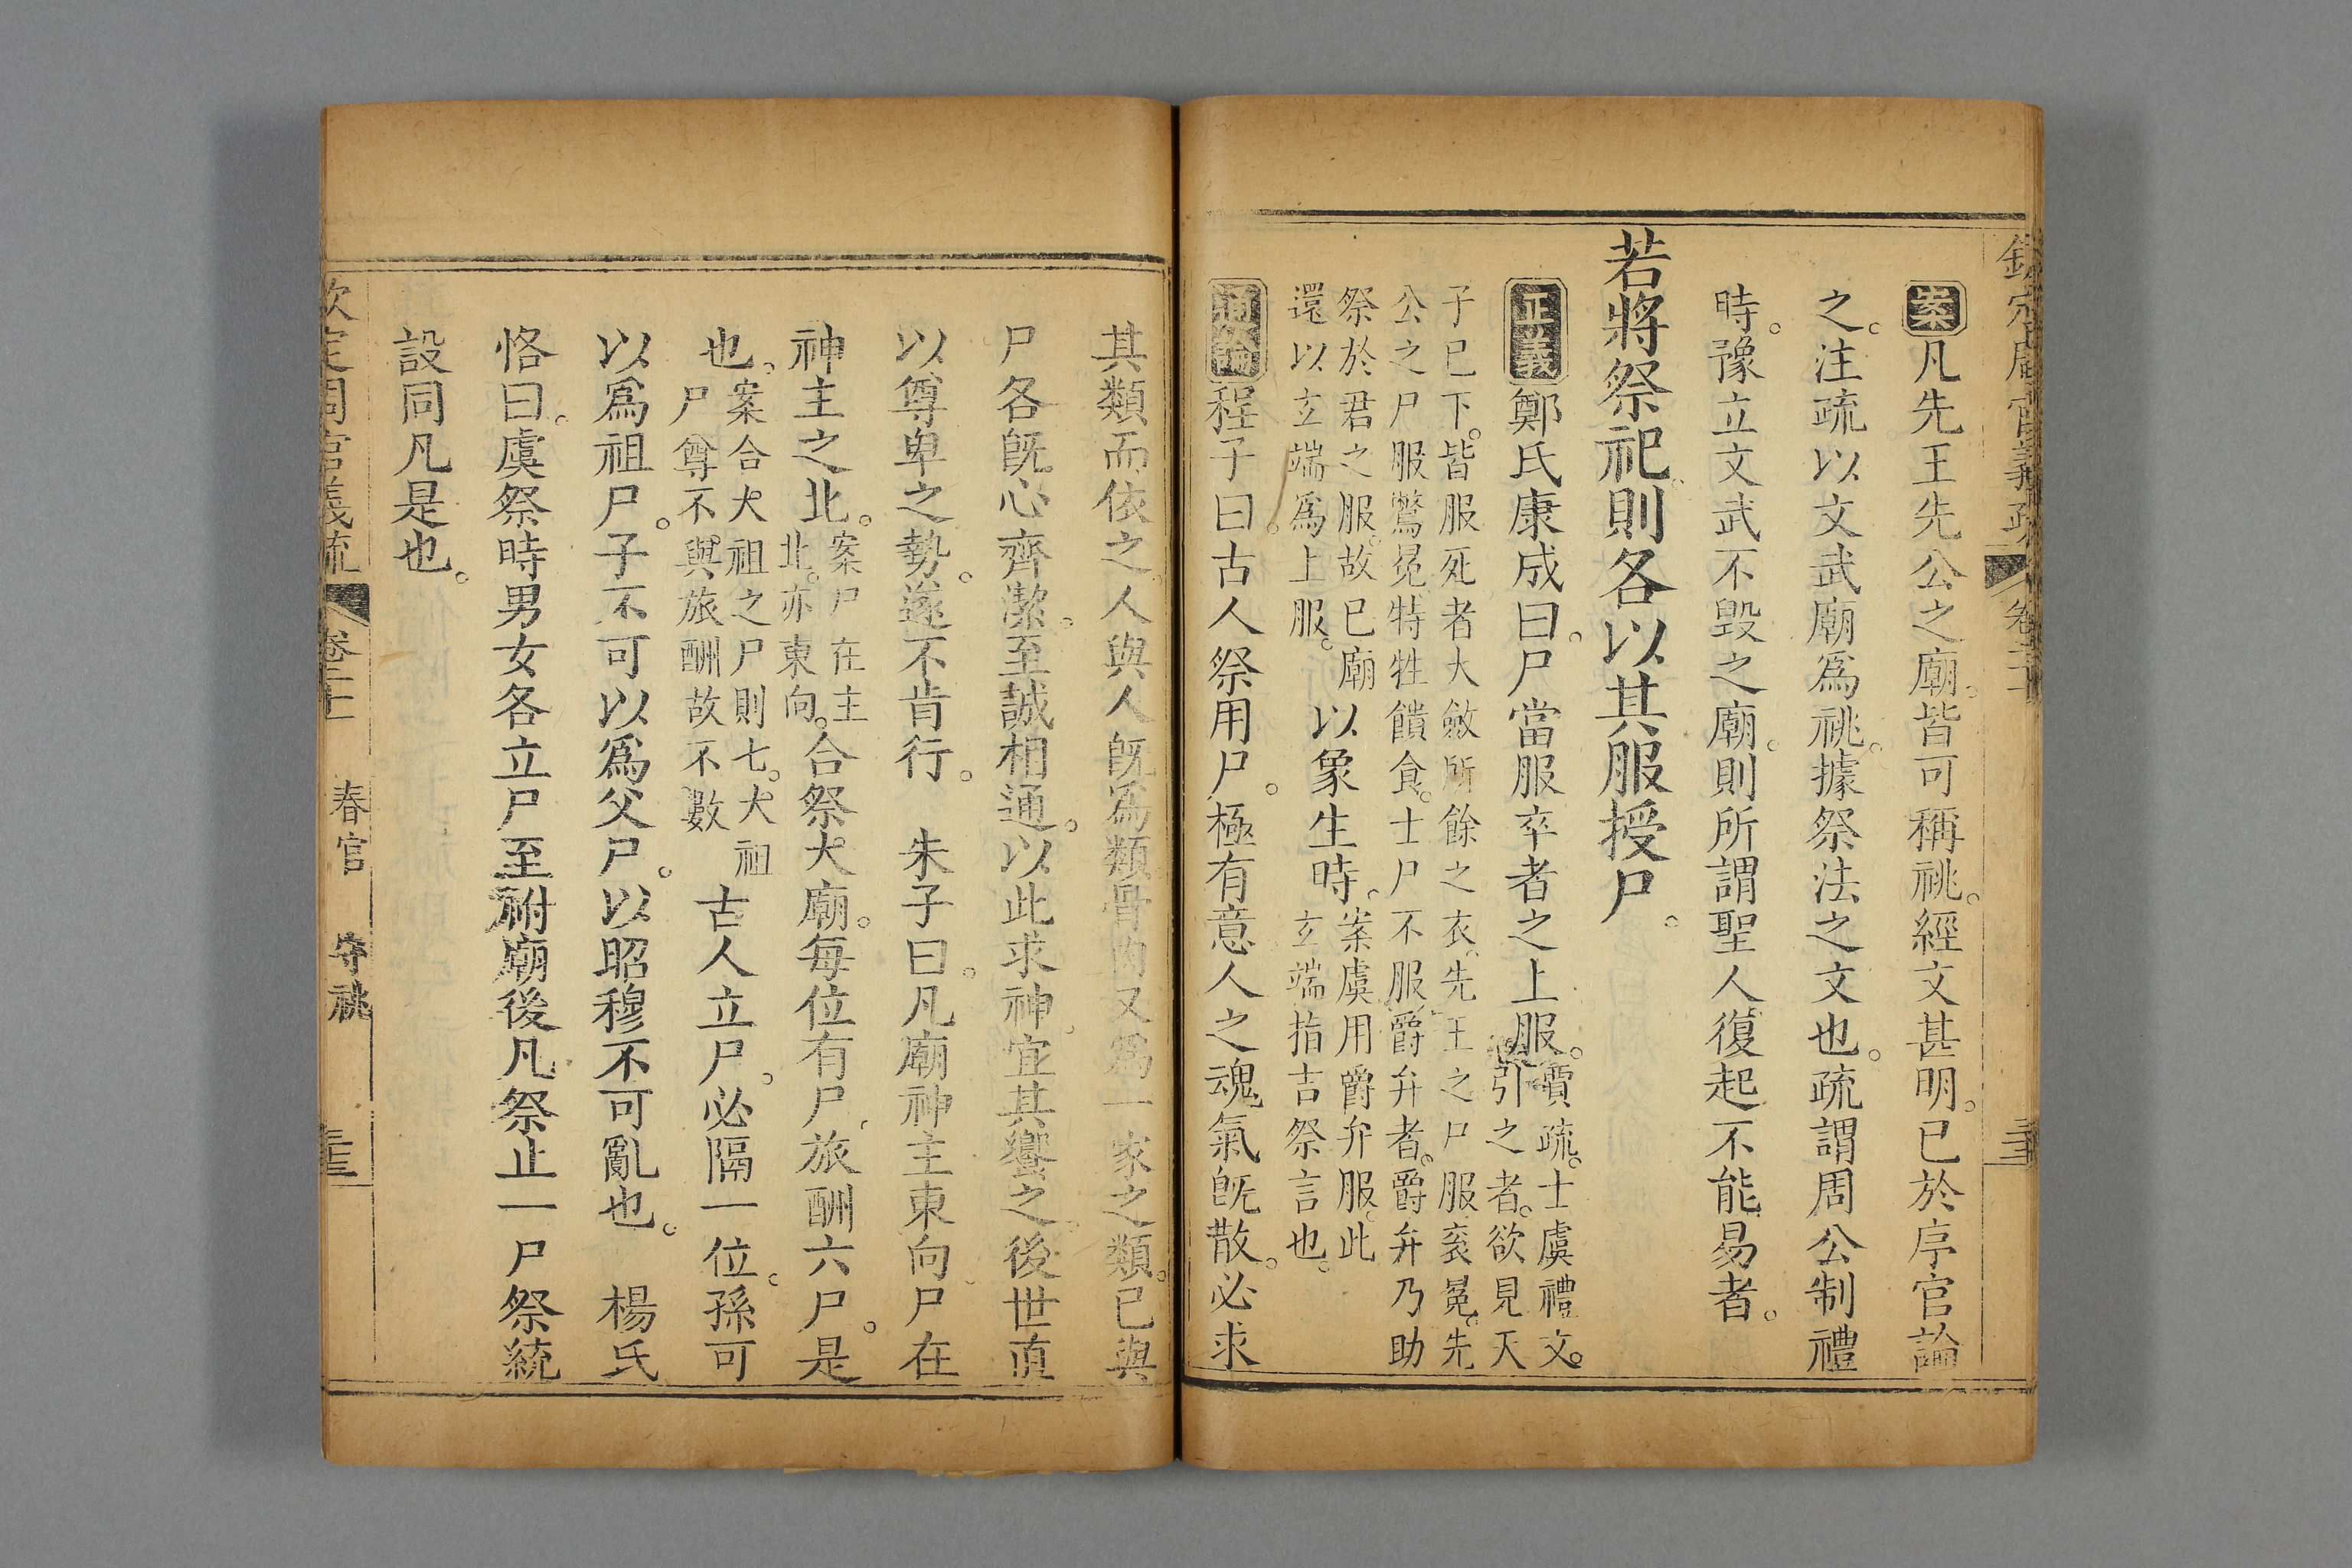 欽定周官義疏 卷二十
案凡先王先公之廟。皆可稱祧。經文甚明。已於序官論
之。注疏以文武廟爲祧。據祭法之文也。疏謂周公制禮
時。豫立文武不毀之廟。則所謂聖人復起不能易者。
若將祭祀則各以其服授尸。
正義鄭氏康成曰。尸當服卒者之上服。賈疏。士虞禮文。
引之者。欲見天
子已下。皆服死者大斂所餘之衣。先王之尸服衮冕。先
公之尸服鷩冕。特牲饋食。士尸不服爵弁者。爵弁乃助
祭於君之服。故已廟
還以玄端爲上服。
以象生時。
案虞用爵弁服。此
玄端指吉祭言也。
通論程子曰。古人祭用尸。極有意人之魂氣旣散。必求
其類而依之。人與人旣爲類骨肉又爲一家之類。已與
尸各旣心齊潔。至誠相通。以此求神。宜其饗之。後世直
以尊卑之勢。遂不肯行。 朱子曰。凡廟神主東向。尸在
神主之北。案尸在主
北。亦東向。
合祭大廟。每位有尸。旅酬六尸。是
也。案合大祖之尸則七。大祖
尸尊不與旅酬故不數
古人立尸。必隔一位。孫可
以爲祖尸。子不可以爲父尸。以昭穆不可亂也。 楊氏
恪曰。虞祭時男女各立尸至祔廟後凡祭止一尸祭統
設同凡是也。
欽定周官義疏 卷二十 春官 守祧